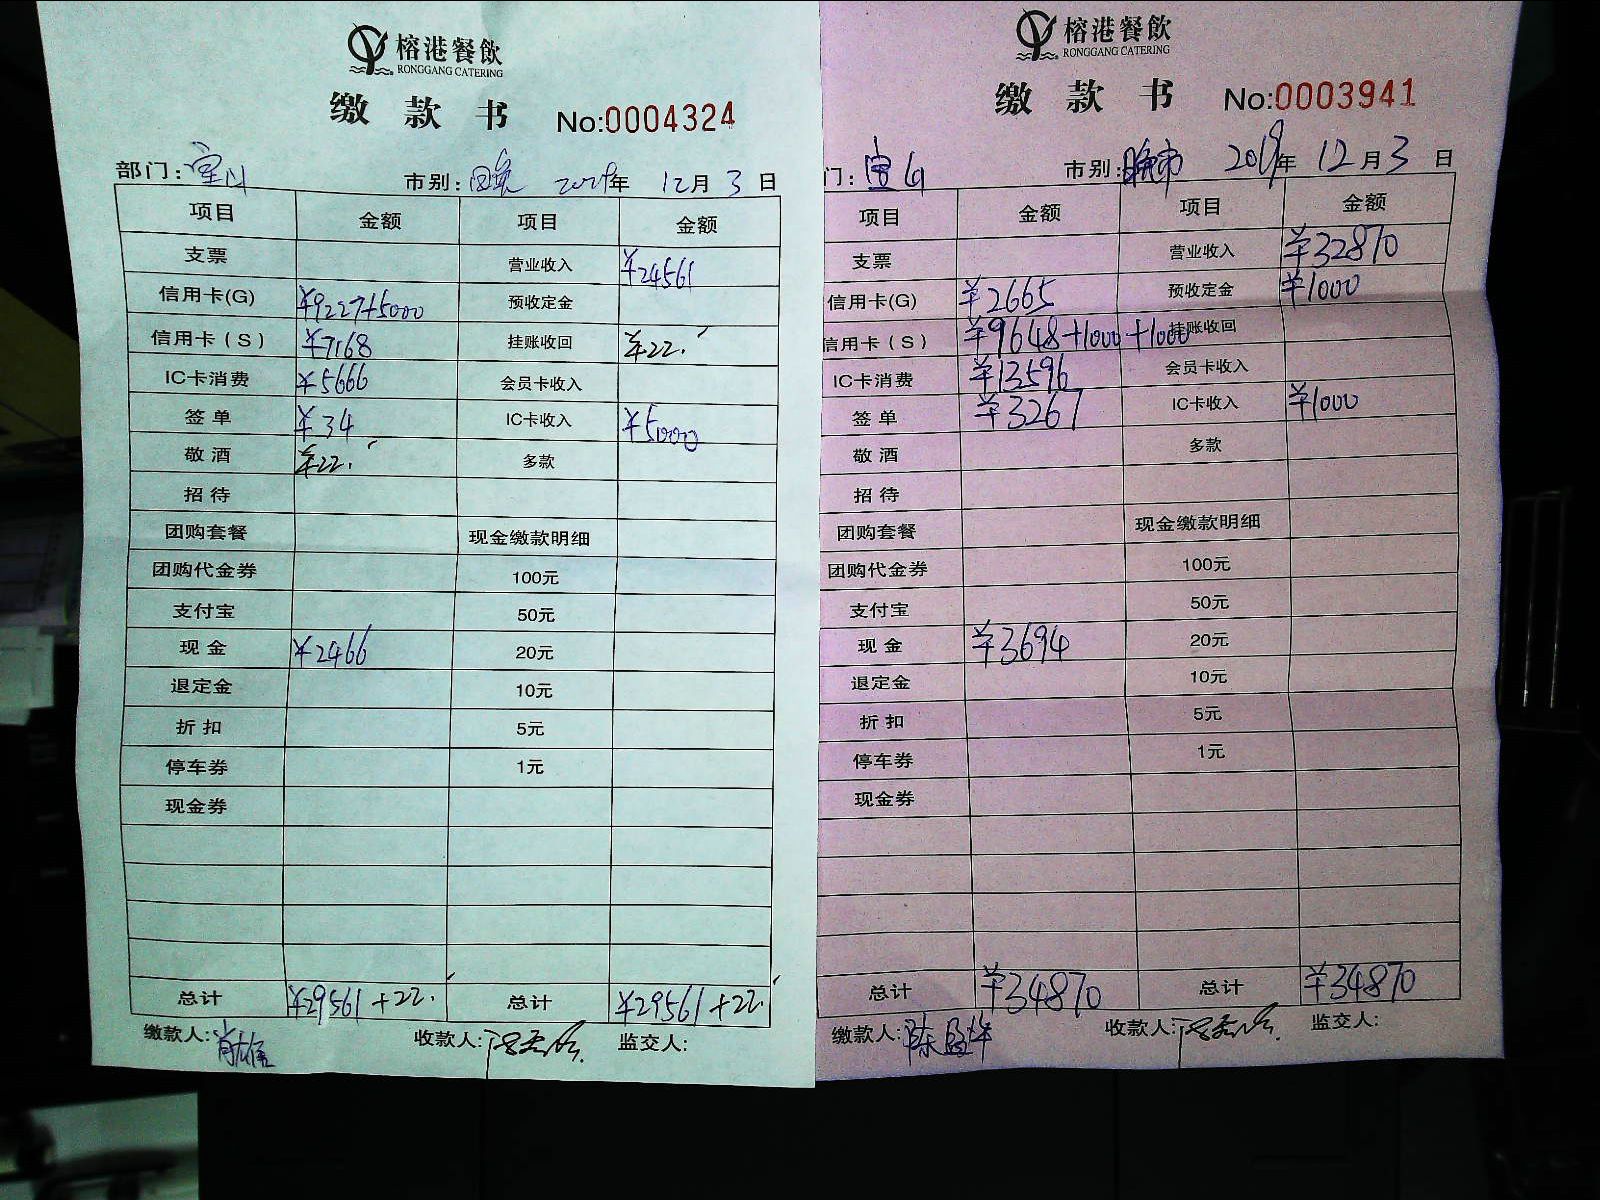 榕港餐飲
RONGGANG CATERING
缴款书 No:0004324
部门: 市别: 年 12月3日
项目 金额 项目 金额
支票 营业收入 ¥24561
信用卡(G) ¥9227+5000 预收定金
信用卡(S) ¥7168 挂账收回 ¥22.
IC卡消费 ¥5666 会员卡收入
签单 ¥34 IC卡收入 ¥5000
敬酒 ¥22. 多款
招待
团购套餐 现金缴款明细
团购代金券 100元
支付宝 50元
现金 ¥2466 20元
退定金 10元
折扣 5元
停车券 1元
现金券
总计 ¥29561+22. 总计 ¥29561+22.
缴款人: 收款人: 监交人:
榕港餐飲
RONGGANG CATERING
缴款书 No:0003941
门: 市别:晚市 2019年12月3日
项目 金额 项目 金额
支票 营业收入 ¥32870
信用卡(G) ¥2665 预收定金 ¥1000
信用卡(S) ¥9648+1000+1000 挂账收回
IC卡消费 ¥13596 会员卡收入
签单 ¥3267 IC卡收入 ¥1000
敬酒 多款
招待
团购套餐 现金缴款明细
团购代金券 100元
支付宝 50元
现金 ¥3694 20元
退定金 10元
折扣 5元
停车券 1元
现金券
总计 ¥34870 总计 ¥34870
缴款人: 收款人: 监交人: